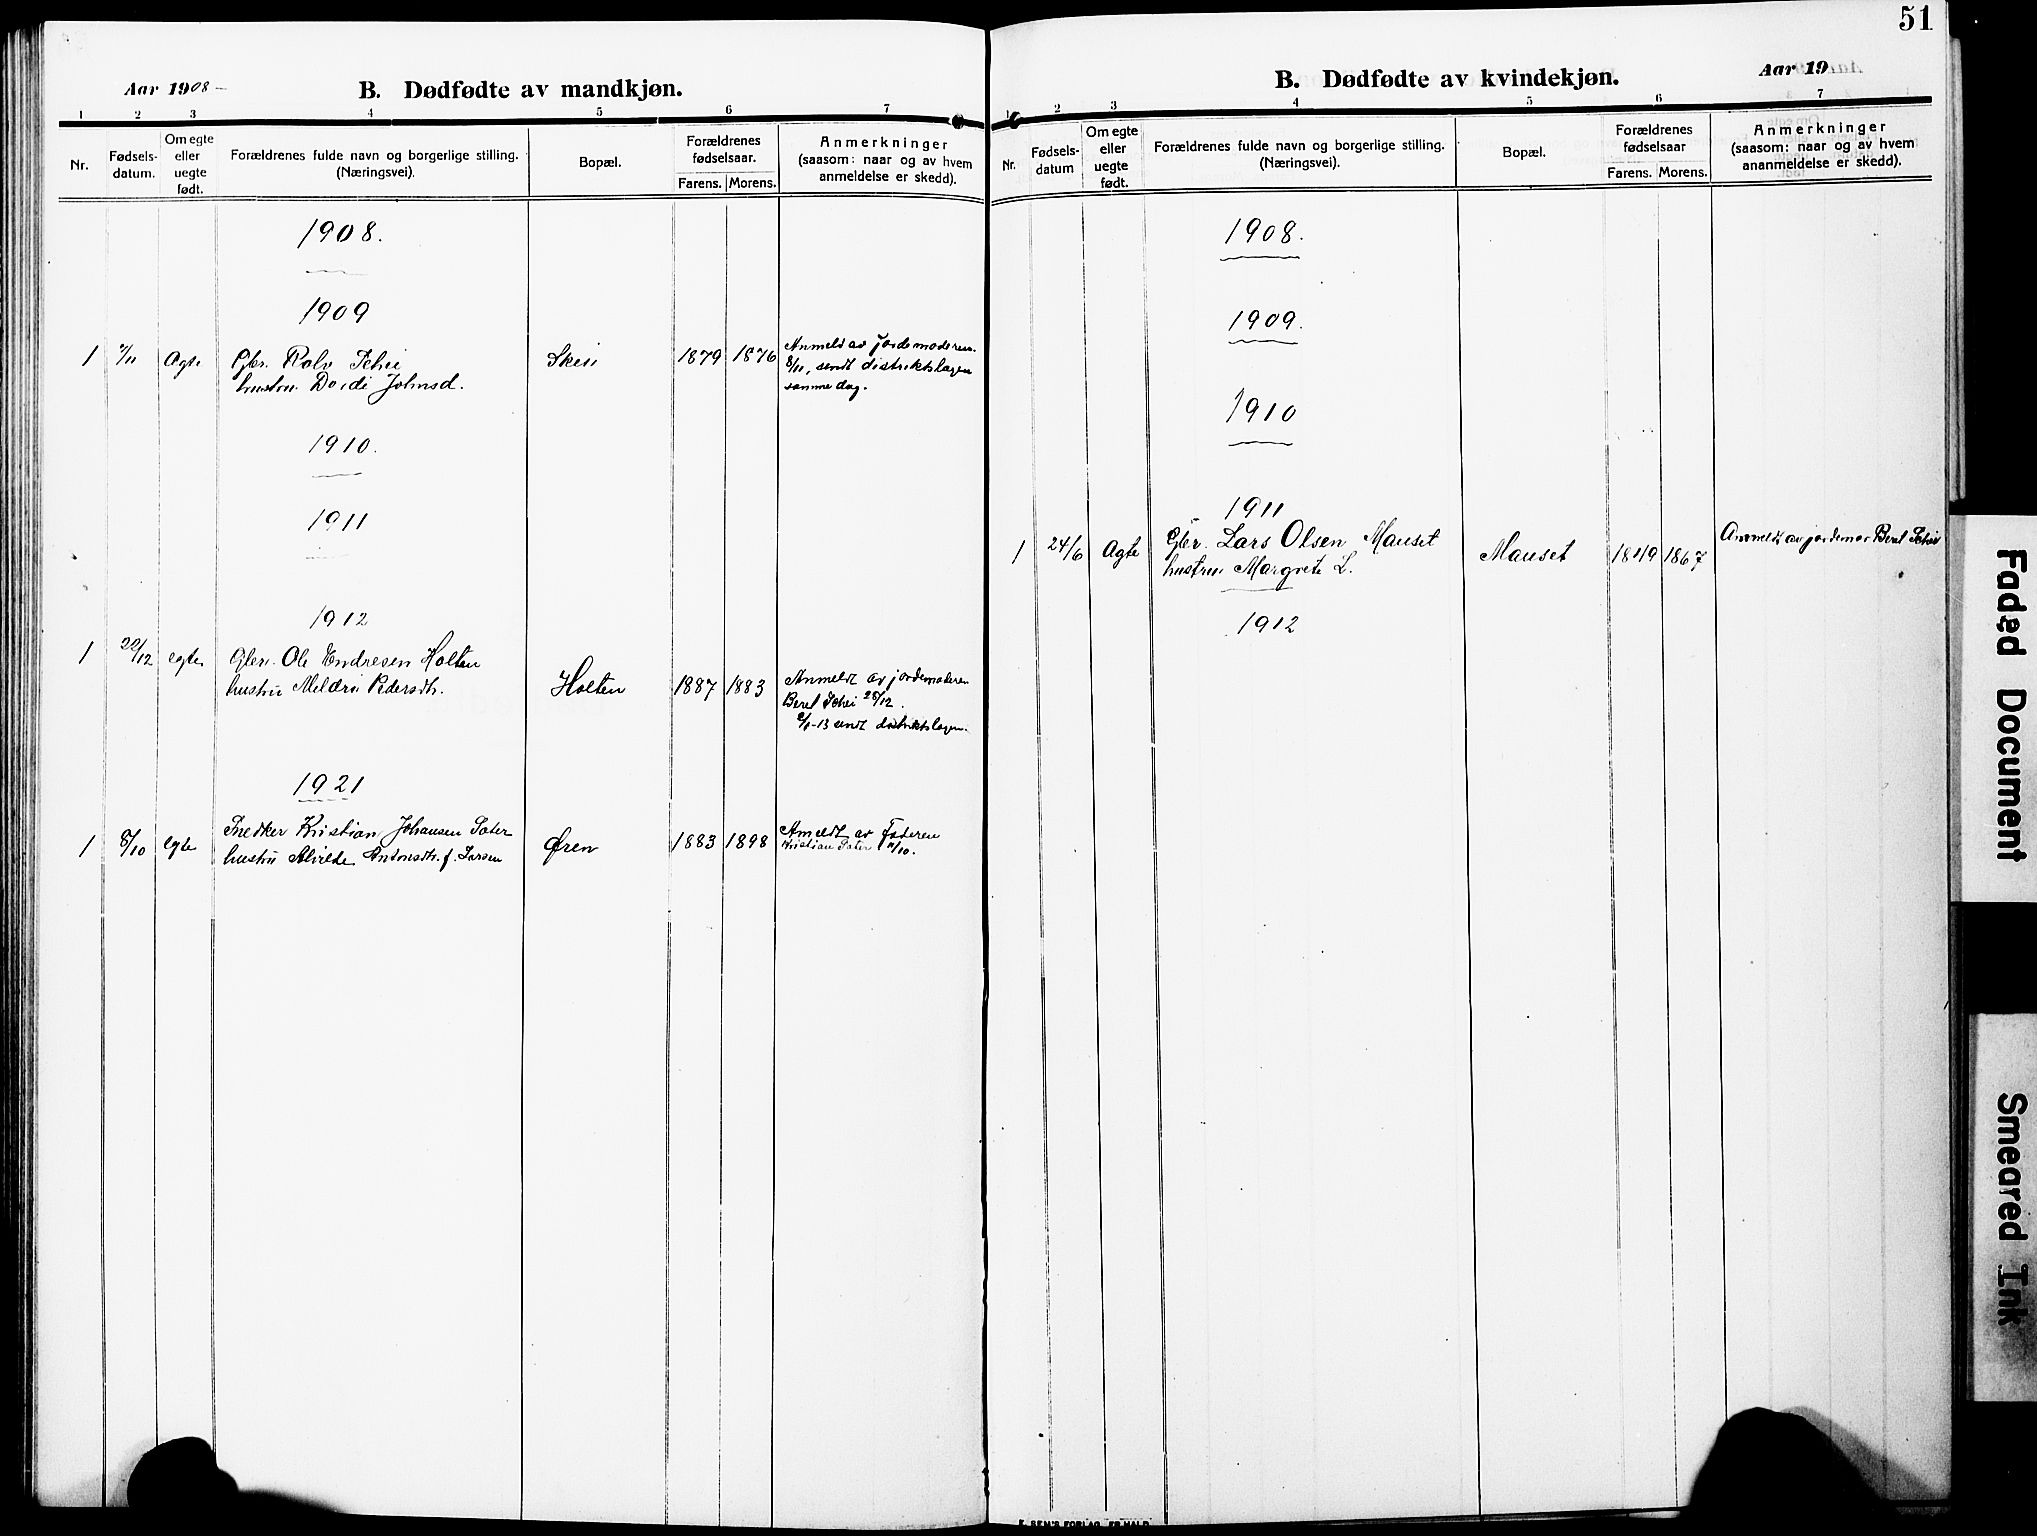 Aar 1908-
B. Dødfødte av mandkjøn.
1 2 3 4 5 6 7
Nr.
Fødsels-
datum.
Om egte
eller
uegte
født.
Forældrenes fulde navn og borgerlige stilling.
(Næringsvei).
Bopæl.
Forældrenes
fødselsaar.
Farens. Morens.
Anmerkninger
(saasom: naar og av hvem
anmeldelse er skedd).
1908.
1909
1 Ægte Gbr. Rolv Schei Skei 1879 1876 Anmeldt av jordemoderen
hustru Dordi Johnsd. 8/11, sendt distriktslægen
samme dag.
1910.
1911
1912
1 egte Gbr. Ole Endresen Holten
hustru Pedersdtr. Holten 1887 1883 Anmeldt av jordemoderen
Beret Schei 28/12.
sendt distriktslægen.
1921
1 8/10 egte Snedker Kristian Johansen Sæter Øren 1883 1898 Anmeldt av Faderen
hustru Antonsdtr. f. Larsen Kristian Sæter
51
Aar 19
B. Dødfødte av kvindekjøn.
1 2 3 4 5 6 7
Nr.
Fødsels-
datum
Om egte
eller
uegte
født.
Forældrenes fulde navn og borgerlige stilling.
(Næringsvei).
Bopæl.
Forældrenes
fødselsaar
Farens. Morens.
Anmerkninger
(saasom: naar og av hvem
ananmeldelse er skedd).
1908.
1909.
1910
1911
1 24/6 Ægte Gbr. Lars Olsen Mauset Mauset 1849 1867 Anmeldt av jordemor Beret Schei
hustru Margrete L.
1912
Faded Document
Smeared Ink